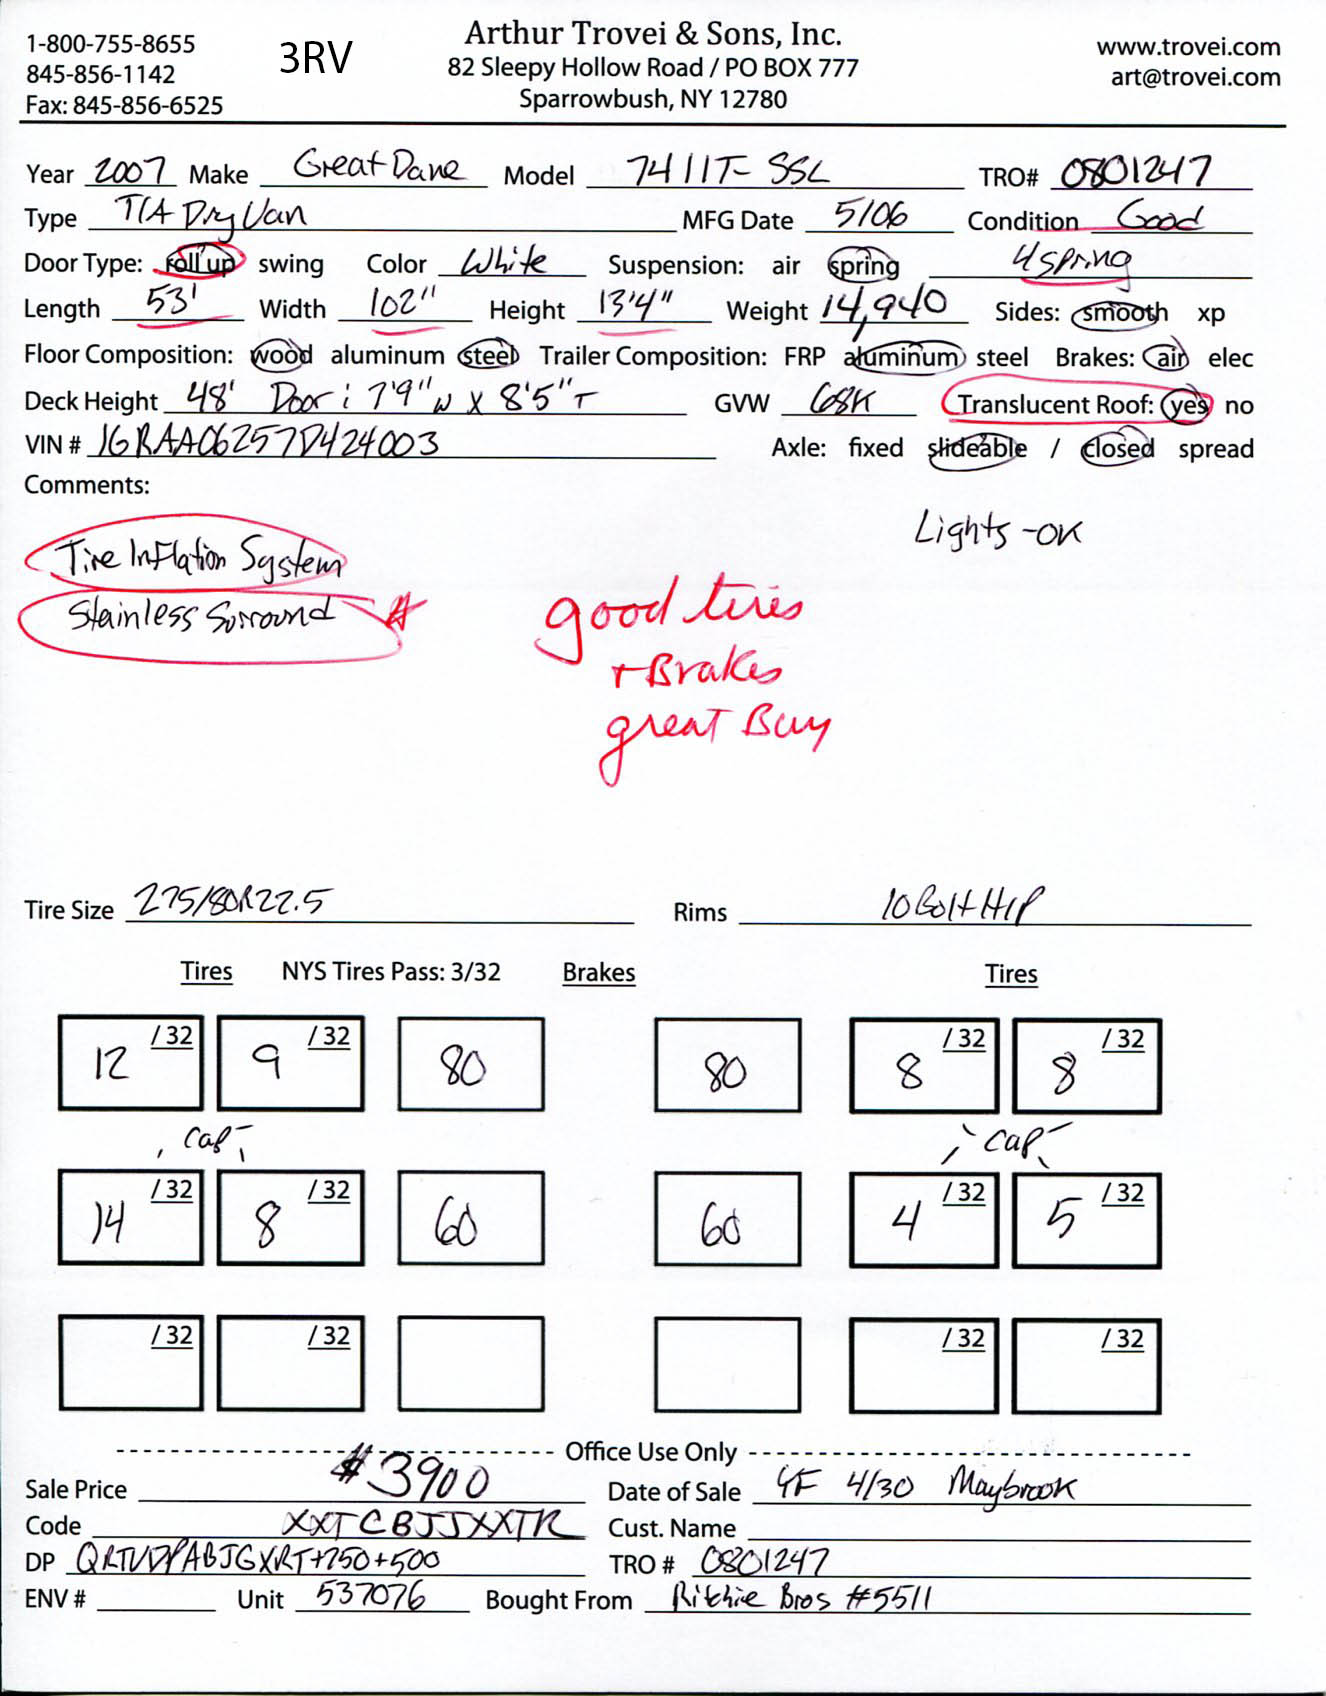 1-800-755-8655 3RV Arthur Trovei & Sons, Inc. www.trovei.com
845-856-1142 82 Sleepy Hollow Road / PO BOX 777 art@trovei.com
Fax: 845-856-6525 Sparrowbush, NY 12780
Year 2007 Make Great Dane Model 7411T-SSL TRO# 0801247
Type T/A Dry Van MFG Date 5/06 Condition Good
Door Type: roll up swing Color White Suspension: air spring 4 spring
Length 53' Width 102" Height 13'4" Weight 14,940 Sides: smooth xp
Floor Composition: wood aluminum steel Trailer Composition: FRP aluminum steel Brakes: air elec
Deck Height 48' Door: 7'9"W X 8'5"T GVW 68K Translucent Roof: yes no
VIN # 1GRAA06257D424003 Axle: fixed slideable / closed spread
Comments:
Lights -OK
Tire Inflation System
Stainless Surround
good tires
+ Brakes
great Buy
Tire Size 275/80R22.5 Rims 10 Bolt H/P
Tires NYS Tires Pass: 3/32 Brakes Tires
12 /32 9 /32 80 80 8 /32 8 /32
cap cap
14 /32 8 /32 60 60 4 /32 5 /32
/32 /32 /32 /32
Office Use Only
Sale Price $3900 Date of Sale YF 4/30 Maybrook
Code XXTCBJJXXTR Cust. Name
DP +750+500 TRO # 0801247
ENV # Unit 537076 Bought From Ritchie Bros #5511